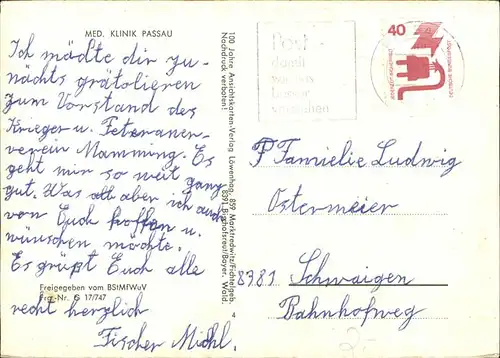 MED. KLINIK PASSAU
Ich mädte dir zu-
nächts grätolieren
zum Vorstand des
Krieger u. Feteranen-
verein Mamming. Es
geht mir so weit ganz
gut. Was alt aber ich auch
von Euch hoffen u.
wünschen möchte.
Es grüßt Euch alle
Freigegeben vom BStMfWuV
Frg.-Nr. G 17/747
recht herzlich
Fischer Michl.
100 Jahre Ansichtskarten-Verlag Löwenhag, 859 Marktredwitz/Fichtelgeb.
Nachdruck verboten! 8391 Bischofsreut/Bayer. Wald.
4
Post -
damit
wir uns
besser
verstehen
40
DEUTSCHE BUNDESPOST
Familie Ludwig
Ostermeier
8381 Schwaigen
Bahnhofweg
2,-